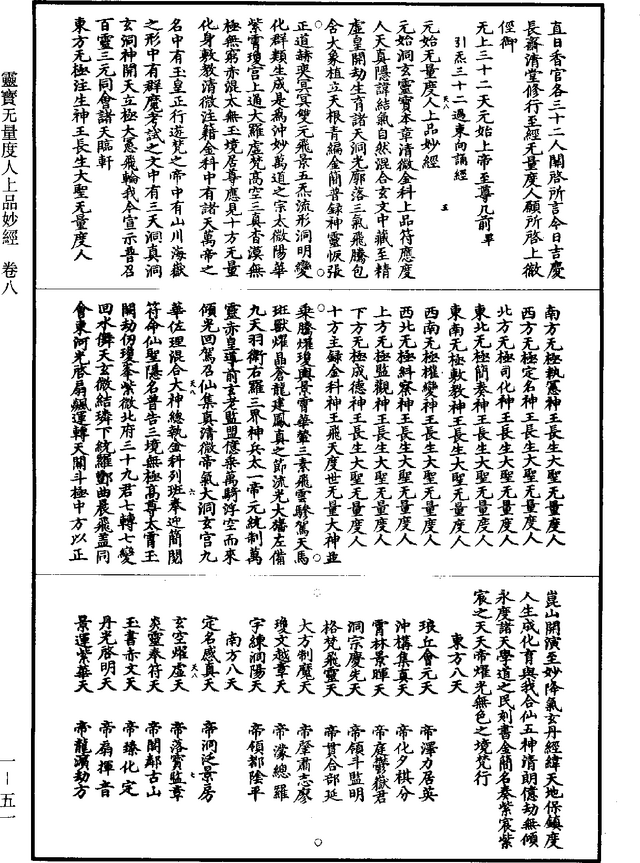 直日香官各三十二人關啓所言今日吉慶
長齋清堂修行至經无量度人願所啓上徹
徑御
无上三十二天元始上帝至尊几前畢
引炁三十二過東向誦經
元始无量度人上品妙經
元始洞玄靈寶本章清微金科上品符應度
人天真隱諱結氣自然混合玄文中藏至精
虛皇開劫生育諸天洞光廓落三氣飛騰包
含大象植立天根青編金簡普錄神靈恢張
正道赫奕冥冥雙元飛景五炁流形洞明變
化群類生成是爲沖妙萬道之宗太微陽華
紫霄瓊宮上通大羅虛梵高空三真杳漠無
極無窮赤混太無玉境居尊應見十方无量
化身敷教清微注籍金科中有諸天萬帝之
名中有玉皇正行遊梵之帝中有山川海嶽
之形中有群魔考試之文中有三天洞真洞
玄洞神開天立極大惠飛輪我今宣示普召
百靈三元同會諸天臨軒
東方无極注生神王長生大聖无量度人
南方无極執憲神王長生大聖无量度人
西方无極定名神王長生大聖无量度人
北方无極司化神王長生大聖无量度人
東北无極簡奏神王長生大聖无量度人
東南无極敷教神王長生大聖无量度人
西南无極權變神王長生大聖无量度人
西北无極糾察神王長生大聖无量度人
上方无極監觀神王長生大聖无量度人
下方无極成德神王長生大聖无量度人
十方主錄金科神王飛天度世无量大神並
乘騰燿瓊輿景霄華輦三素飛雲驂駕天馬
班獸燿晶蒼龍建鳳真之節流光大旛左備
九天羽衛右羅三界神兵太一帝元統制萬
靈赤皇導前玄老監盟應乘萬騎浮空而來
傾光回駕召仙集真清微帝氣大洞玄宮九
華佐理混合大神總執金科列班奉迎簡閱
符命仙聖隱名普告三境無極高尊太霄玉
闕劫仞瓊峯紫微北府三十九君七轉七變
回水儛天玄微結璘下統羅酆曲晨飛蓋同
會東河光啓扇飆運轉天關斗極中方以正
崑山開演至妙降氣玄丹經緯天地保鎮度
人生成化育與我合仙五神清朗億劫無傾
永度諸天學道之民刻書金簡名奏紫宸紫
宸之天天帝燿光無色之境梵行
東方八天
琅丘會元天 帝澤力居英
沖構集真天 帝化夕棋分
霄林景暉天 帝庭鬱嶽君
洞宗慶先天 帝領斗監明
格梵飛靈天 帝貫合部延
大方制魔天 帝肇肅志廖
瓊文越章天 帝濛總羅
字練洞陽天 帝領都陰平
南方八天
定名感真天 帝洞泛景房
玄空燿虛天 帝落寳監章
炎靈奉符天 帝開都古山
玉書赤文天 帝臻化定
丹光啓明天 帝扇揮音
景運紫華天 帝龍濱劫方
靈寶无量度人上品妙經 卷八
一—五一